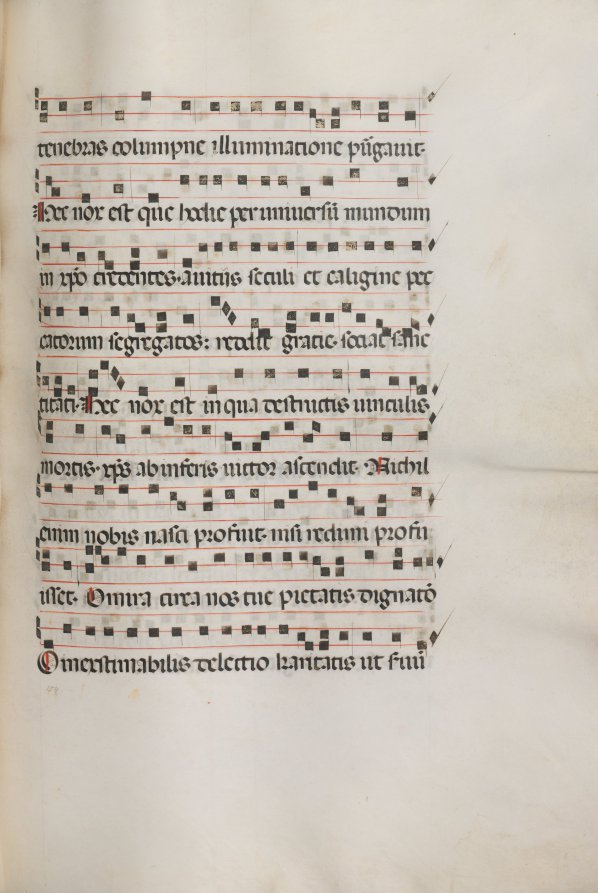 tenebras columpne illuminatione pu͛gauit·
Hec nox est que hodie per uniuersū mundum
in xp̄o credentes· auitijs seculi et caligine pec
catorum segregatos: reddit gratie· sociat sanc
titati· Hec nox est in qua destructis uinculis
mortis· xp̄s ab inferis uictor ascendit· Nichil
enim nobis nasci profuit· nisi redimi profu
isset· O mira circa nos tue pietatis dignatō
O inextimabilis delectio karitatis ut seruū